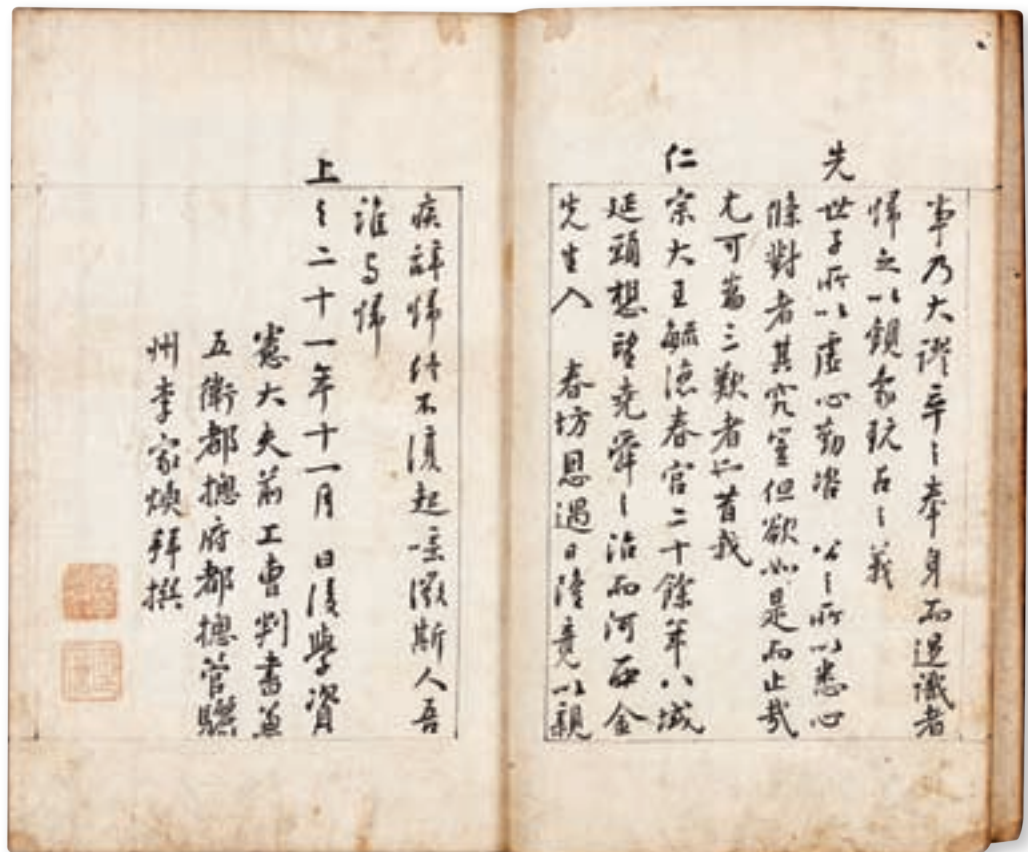 事乃大謬卒之奉身而退識者
歸之以觀象玩占之義
先世子所以虛心勤咨 公之所以悉心
條對者其究豈但欲如是而止哉
尤可爲三歎者也昔我
仁宗大王毓德春宮二十餘年八域
延頸想望堯舜之治而河西金
先生入 春坊恩遇日隆竟以親
疾辭歸終不復起噫微斯人吾
誰与歸
上之二十一年十一月 日後學資
憲大夫前工曹判書兼
五衛都摠府都摠管驪
州李家煥拜撰